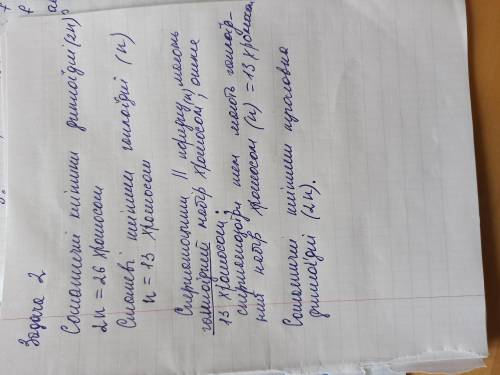 Задача 2
Соматичні клітини диплоїдні (2n)
2n = 26 хромосом
Статеві клітини гаплоїдні (n)
n = 13 хромосом
Сперматоцити II порядку мають
гаплоїдний набір хромосом (n), отже
13 хромосом;
сперматозоїди теж мають гаплоїд-
ний набір хромосом (n) = 13 хромосом
Соматичні клітини
диплоїдні (2n).